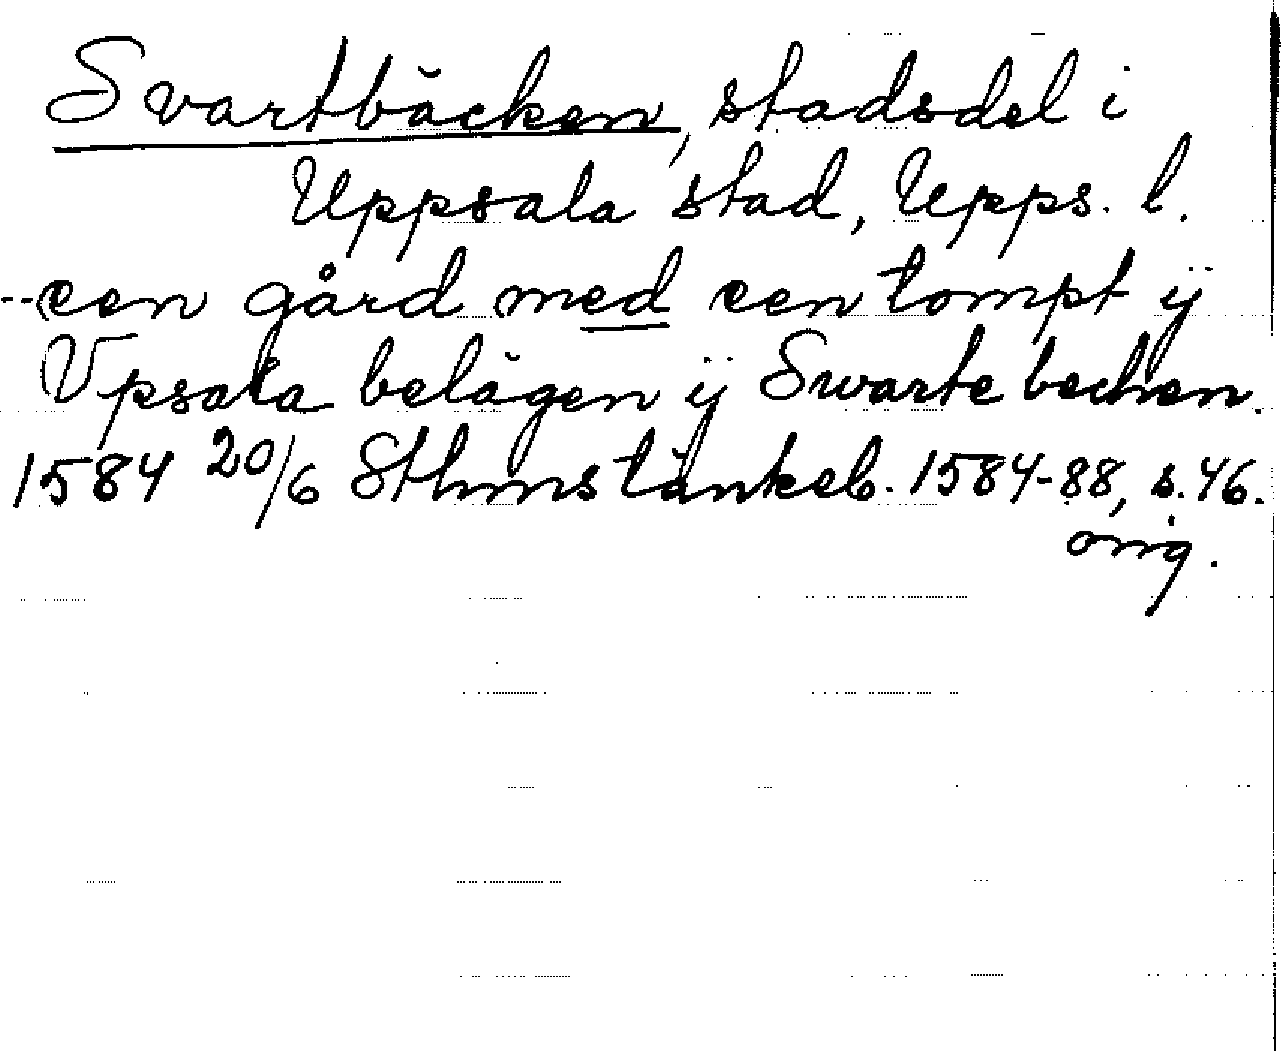 Svartbäcken, stadsdel i
Uppsala stad, Upps. l.
--een gård med een tompt ÿ
Vpsala belägen ÿ Swarte becken.
1584 20/6 Sthms tänkeb. 1584-88, s. 46.
orig.